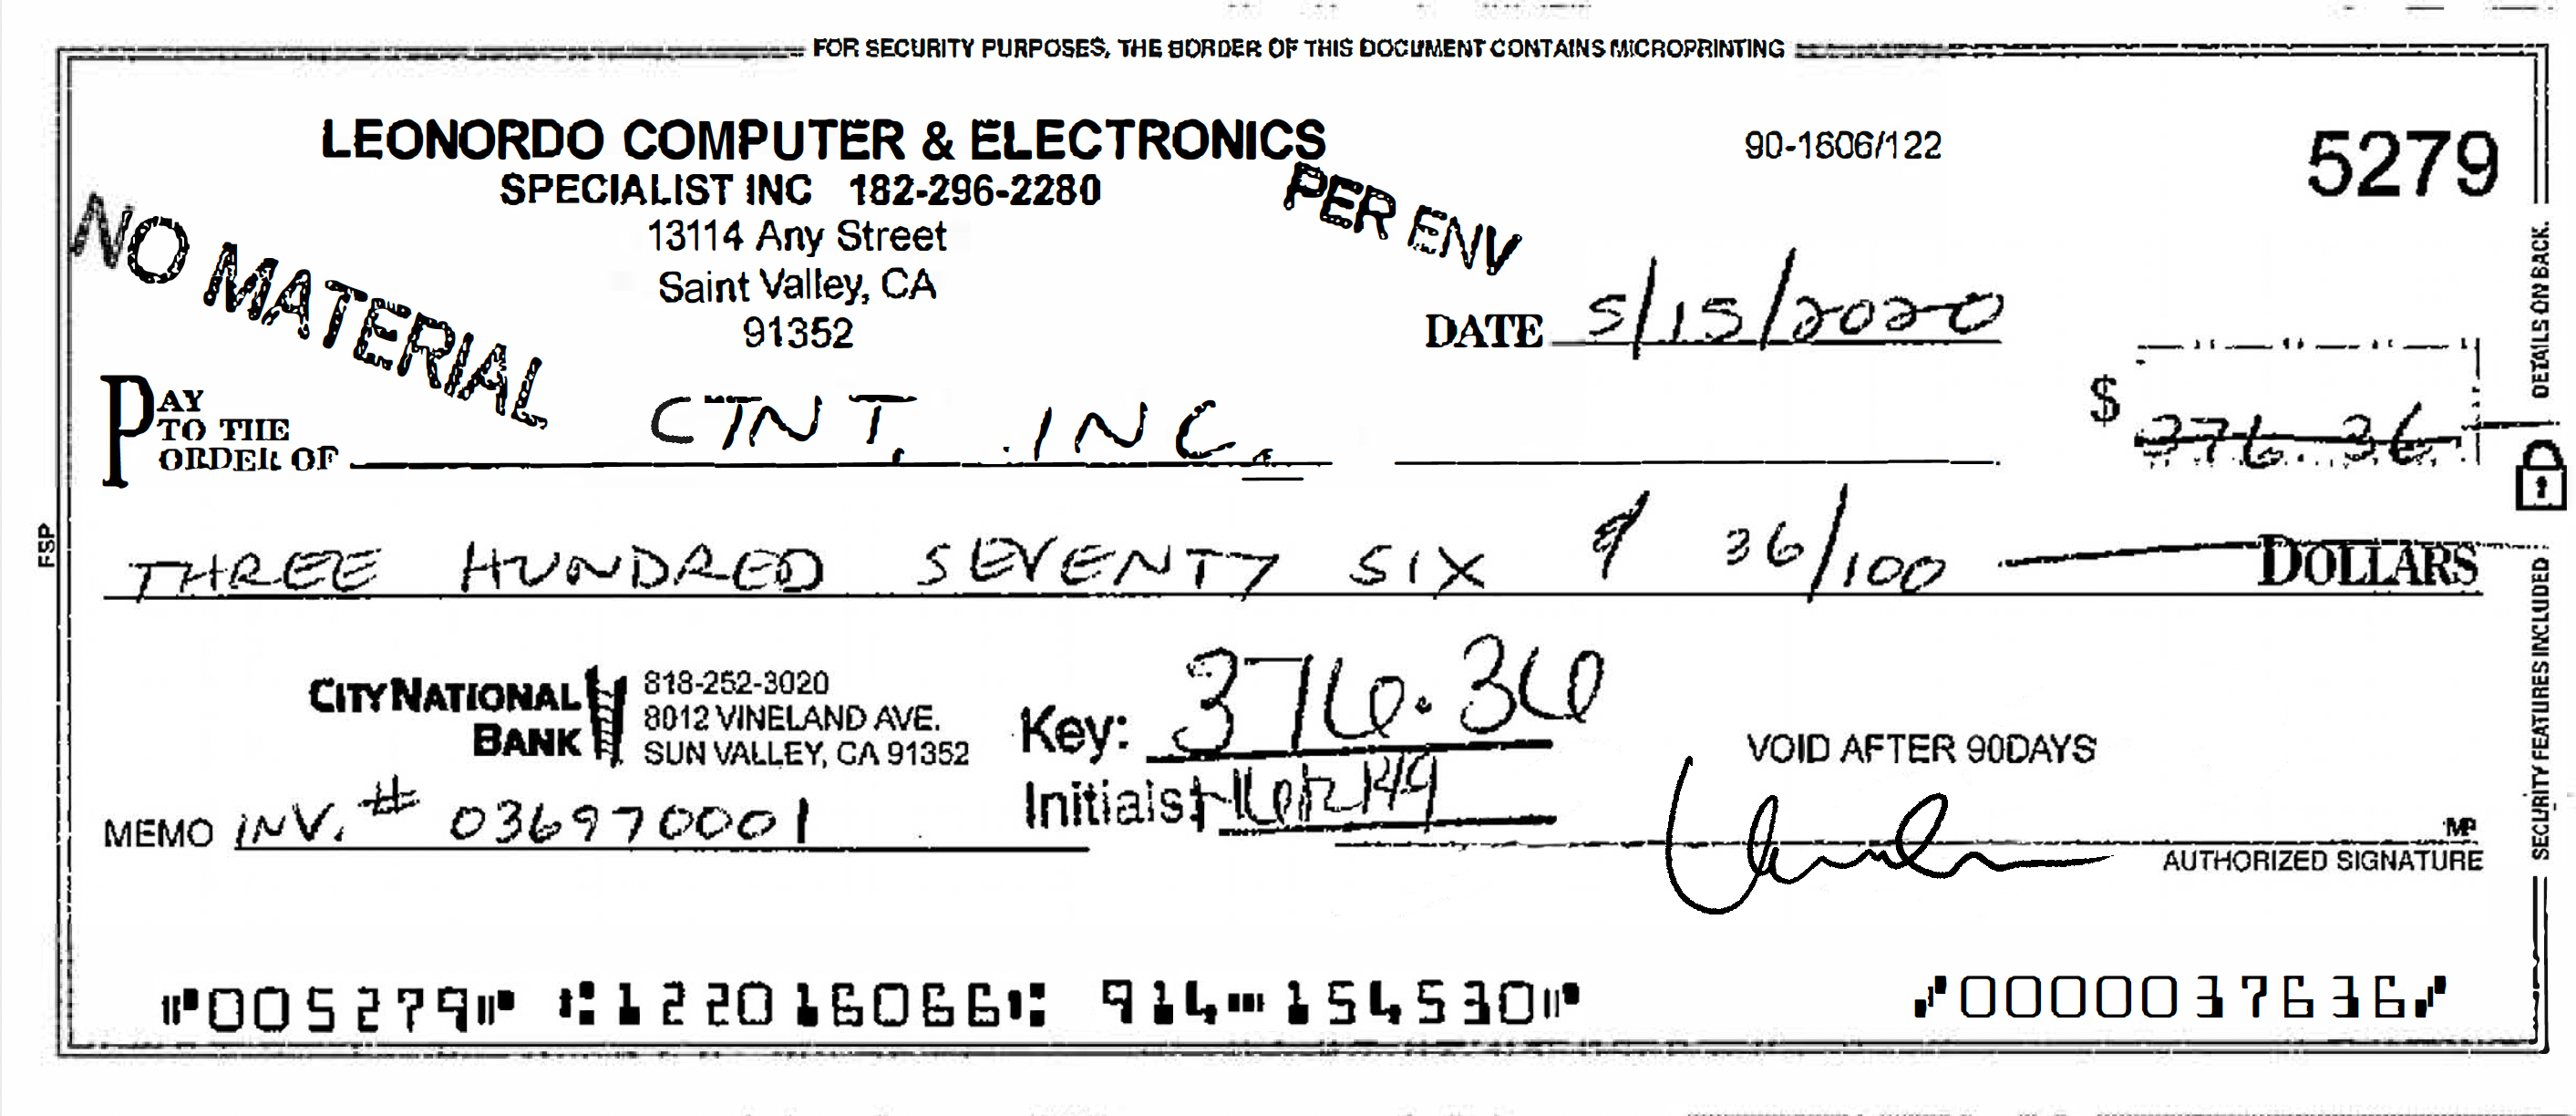 FOR SECURITY PURPOSES, THE BORDER OF THIS DOCUMENT CONTAINS MICROPRINTING
LEONORDO COMPUTER & ELECTRONICS
SPECIALIST INC 182-296-2280
13114 Any Street
Saint Valley, CA
91352
90-1606/122
5279
NO MATERIAL PER ENV
DATE 5/15/2020
PAY TO THE ORDER OF CTNT, INC.
$ 376.36
THREE HUNDRED SEVENTY SIX & 36/100 DOLLARS
CITY NATIONAL BANK
818-252-3020
8012 VINELAND AVE.
SUN VALLEY, CA 91352
Key: 376.36
Initials:
VOID AFTER 90DAYS
MEMO INV. # 036970001
MP
AUTHORIZED SIGNATURE
⑈005279⑈ ⑆122016066⑆ 914⑉154530⑈ ⑇0000037636⑇
FSP
DETAILS ON BACK.
SECURITY FEATURES INCLUDED